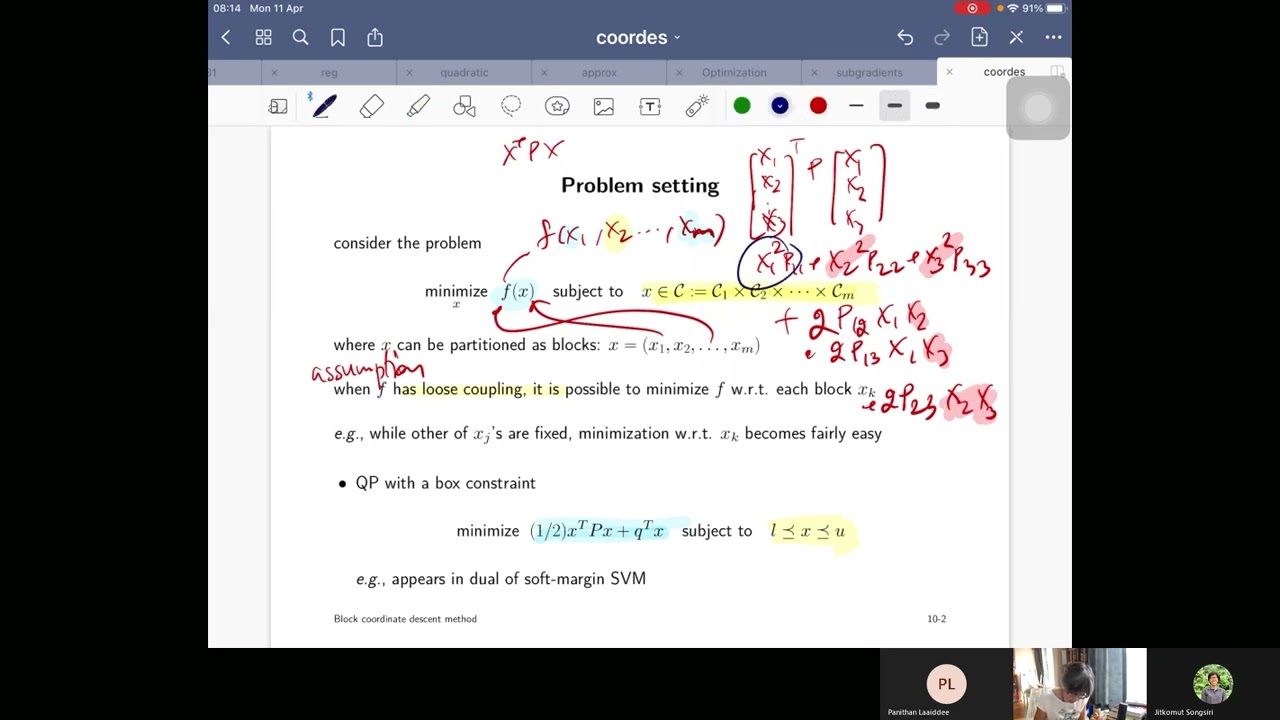 08:14 Mon 11 Apr 91%
coordes
31 reg quadratic approx Optimization subgradients coordes
xᵀPx
[x₁ x₂ x₃]ᵀ P [x₁ x₂ x₃]
Problem setting
f(x₁, x₂ ..., xₘ)
consider the problem
x₁²P₁₁ + x₂²P₂₂ + x₃²P₃₃
minimize f(x) subject to x ∈ C := C₁ × C₂ × ··· × Cₘ
x
+ 2P₁₂ x₁ x₂
where x can be partitioned as blocks: x = (x₁, x₂, ..., xₘ)
+ 2P₁₃ x₁ x₃
assumption
when f has loose coupling, it is possible to minimize f w.r.t. each block xₖ
+ 2P₂₃ x₂ x₃
e.g., while other of xⱼ's are fixed, minimization w.r.t. xₖ becomes fairly easy
• QP with a box constraint
minimize (1/2)xᵀPx + qᵀx subject to l ⪯ x ⪯ u
e.g., appears in dual of soft-margin SVM
Block coordinate descent method 10-2
PL
Panithan Laaiddee Jitkomut Songsiri